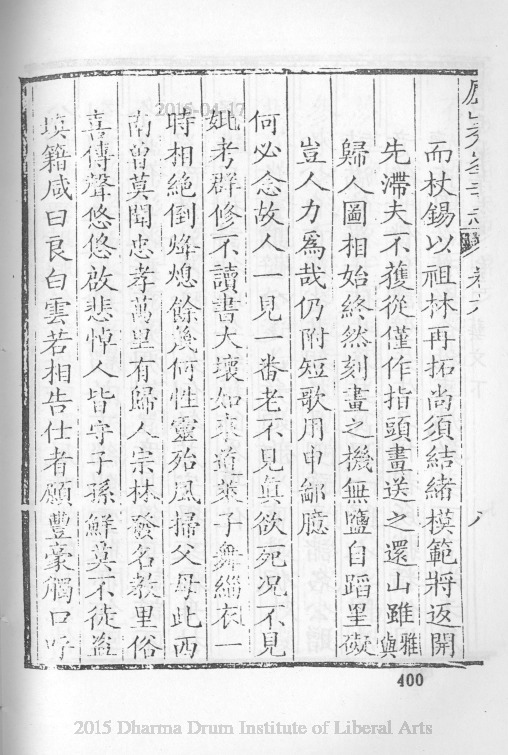 志 卷六 八
而杖錫以祖林再拓尚須結緒模範將返開
先滯夫不獲從僅作指頭畫送之還山雖雅與
歸人圖相始終然刻畫之機無鹽自蹈罣礙
豈人力為哉仍附短歌用申鄙臆
何必念故人一見一番老不見真欲死况不見
妣考群修不讀書大壞如來道萊子舞緇衣一
時相絕倒烽熄餘幾何性靈殆風掃父母此西
南曾莫聞忠孝萬里有歸人宗林發名教里俗
喜傳聲悠悠啟悲悼人皆守子孫鮮莫不徒盜
墳籍咸曰良白雲若相告仕者願豐豪觸口呼
400
2016-04-17
2015 Dharma Drum Institute of Liberal Arts